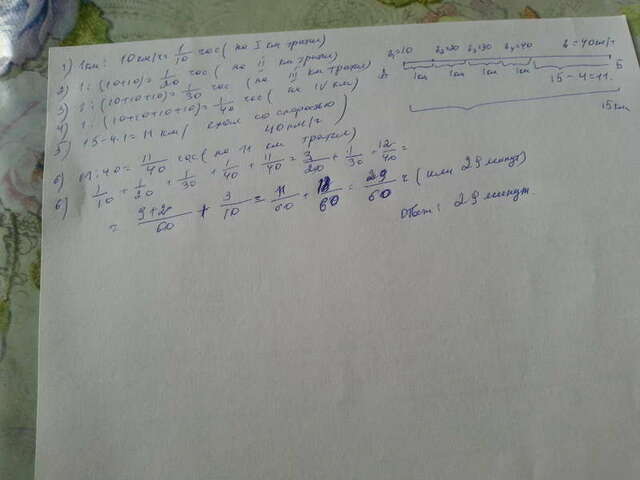 1) 1км : 10км/ч = 1/10 час (на I км трассы)
2) 1 : (10+10) = 1/20 час (на II км трассы)
3) 1 : (10+10+10) = 1/30 час (на III км трассы)
4) 1 : (10+10+10+10) = 1/40 час (на IV км)
5) 15-4·1 = 11 км / ехал со скоростью
40км/ч)
6) 11:40 = 11/40 час (на 11 км трассы)
6) 1/10 + 1/20 + 1/30 + 1/40 + 11/40 = 3/20 + 1/30 + 12/40 =
= 9+2/60 + 3/10 = 11/60 + 18/60 = 29/60 ч (или 29 минут)
Ответ: 29 минут.
v₁=10 v₂=20 v₃=30 v₄=40 v=40км/ч
А Б
1км 1км 1км 1км 15-4=11.
15км